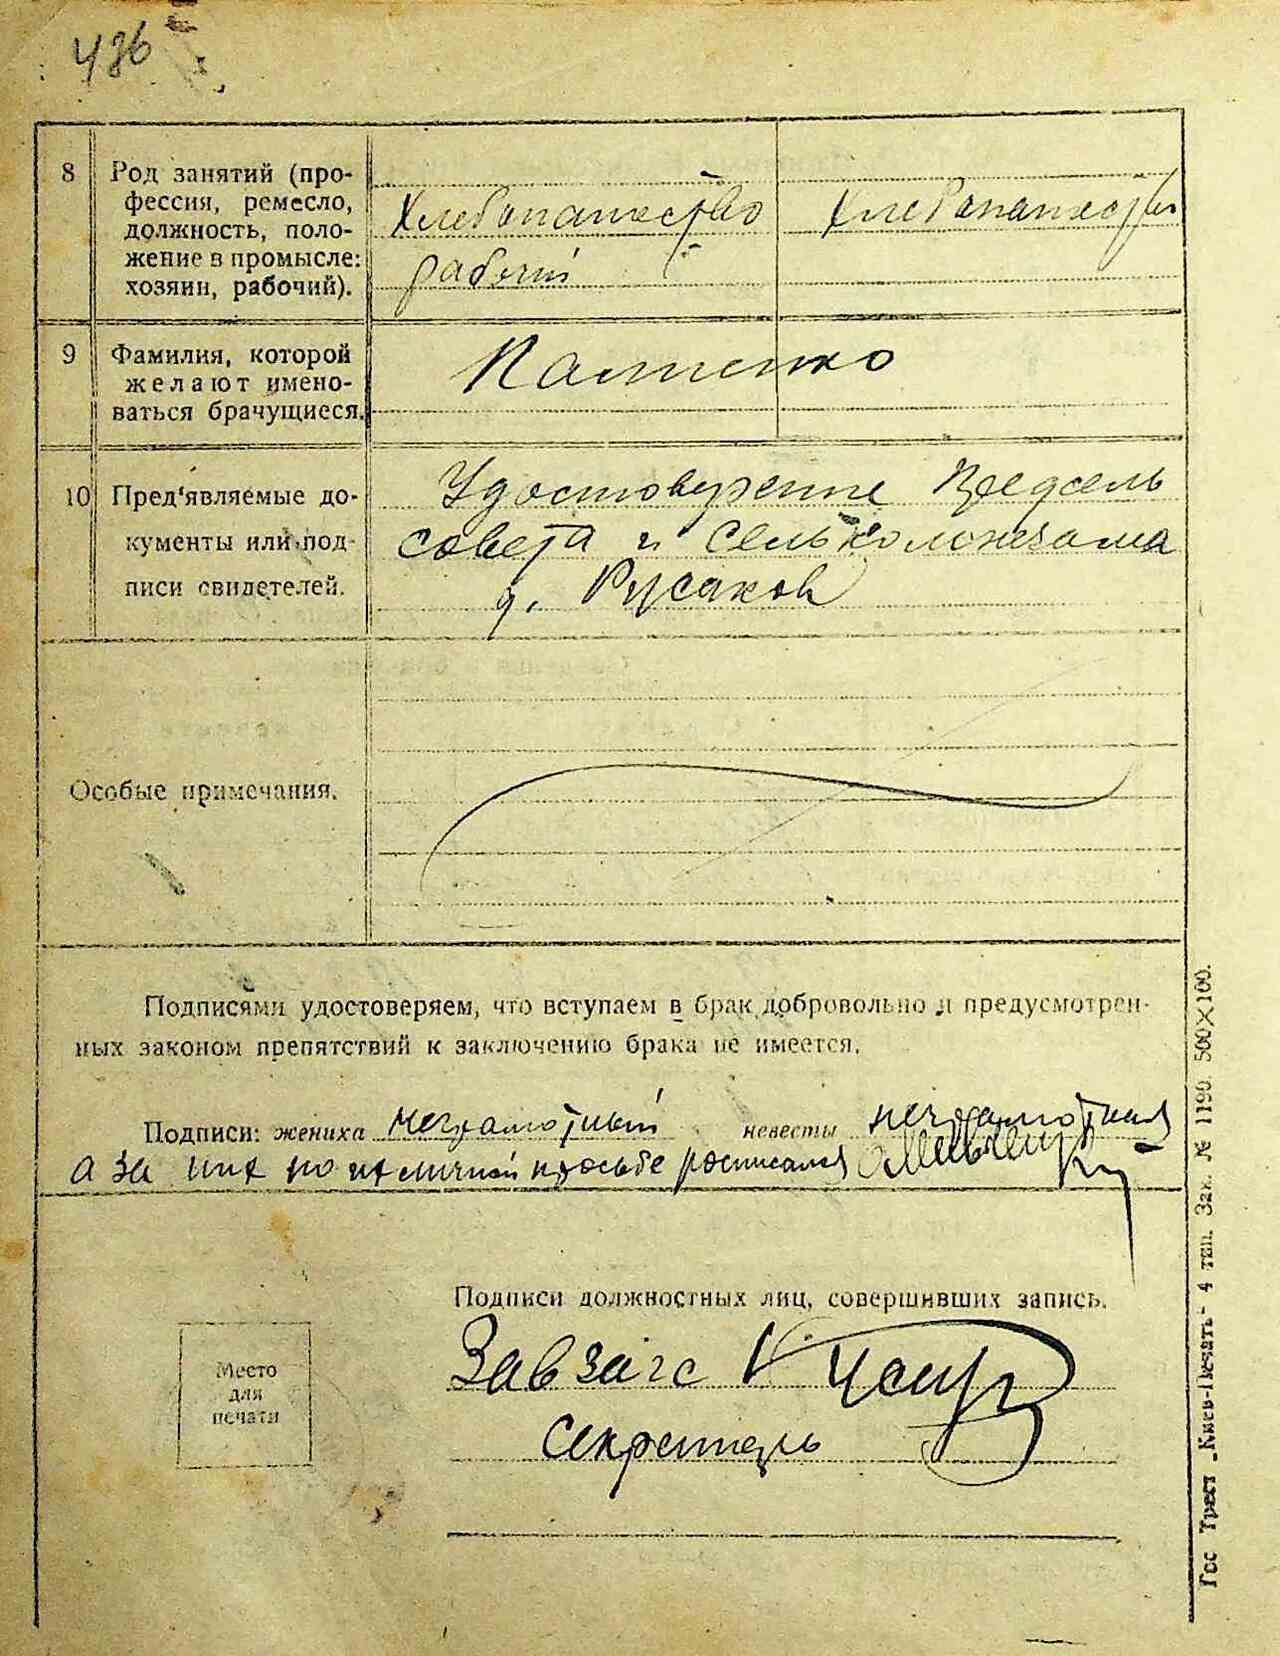 436
8 Род занятий (про-
фессия, ремесло,
должность, поло-
жение в промысле:
хозяин, рабочий).
Хлебопашество Хлебопашество
рабочий
9 Фамилия, которой
желают имено-
ваться брачущиеся.
10 Пред'являемые до-
кументы или под-
писи свидетелей.
Удостоверение Предсель
совета и
д. Русаков
Особые примечания.
Подписями удостоверяем, что вступаем в брак добровольно и предусмотрен-
ных законом препятствий к заключению брака не имеется.
Подписи: жениха неграмотный невесты неграмотная
а за них по их личной просьбе росписался
Подписи должностных лиц, совершивших запись.
Завзагс
Секретарь
Место
для
печати
Гос Трест „Киев-Печать" 4 тип. Зак. № 1190. 500×100.